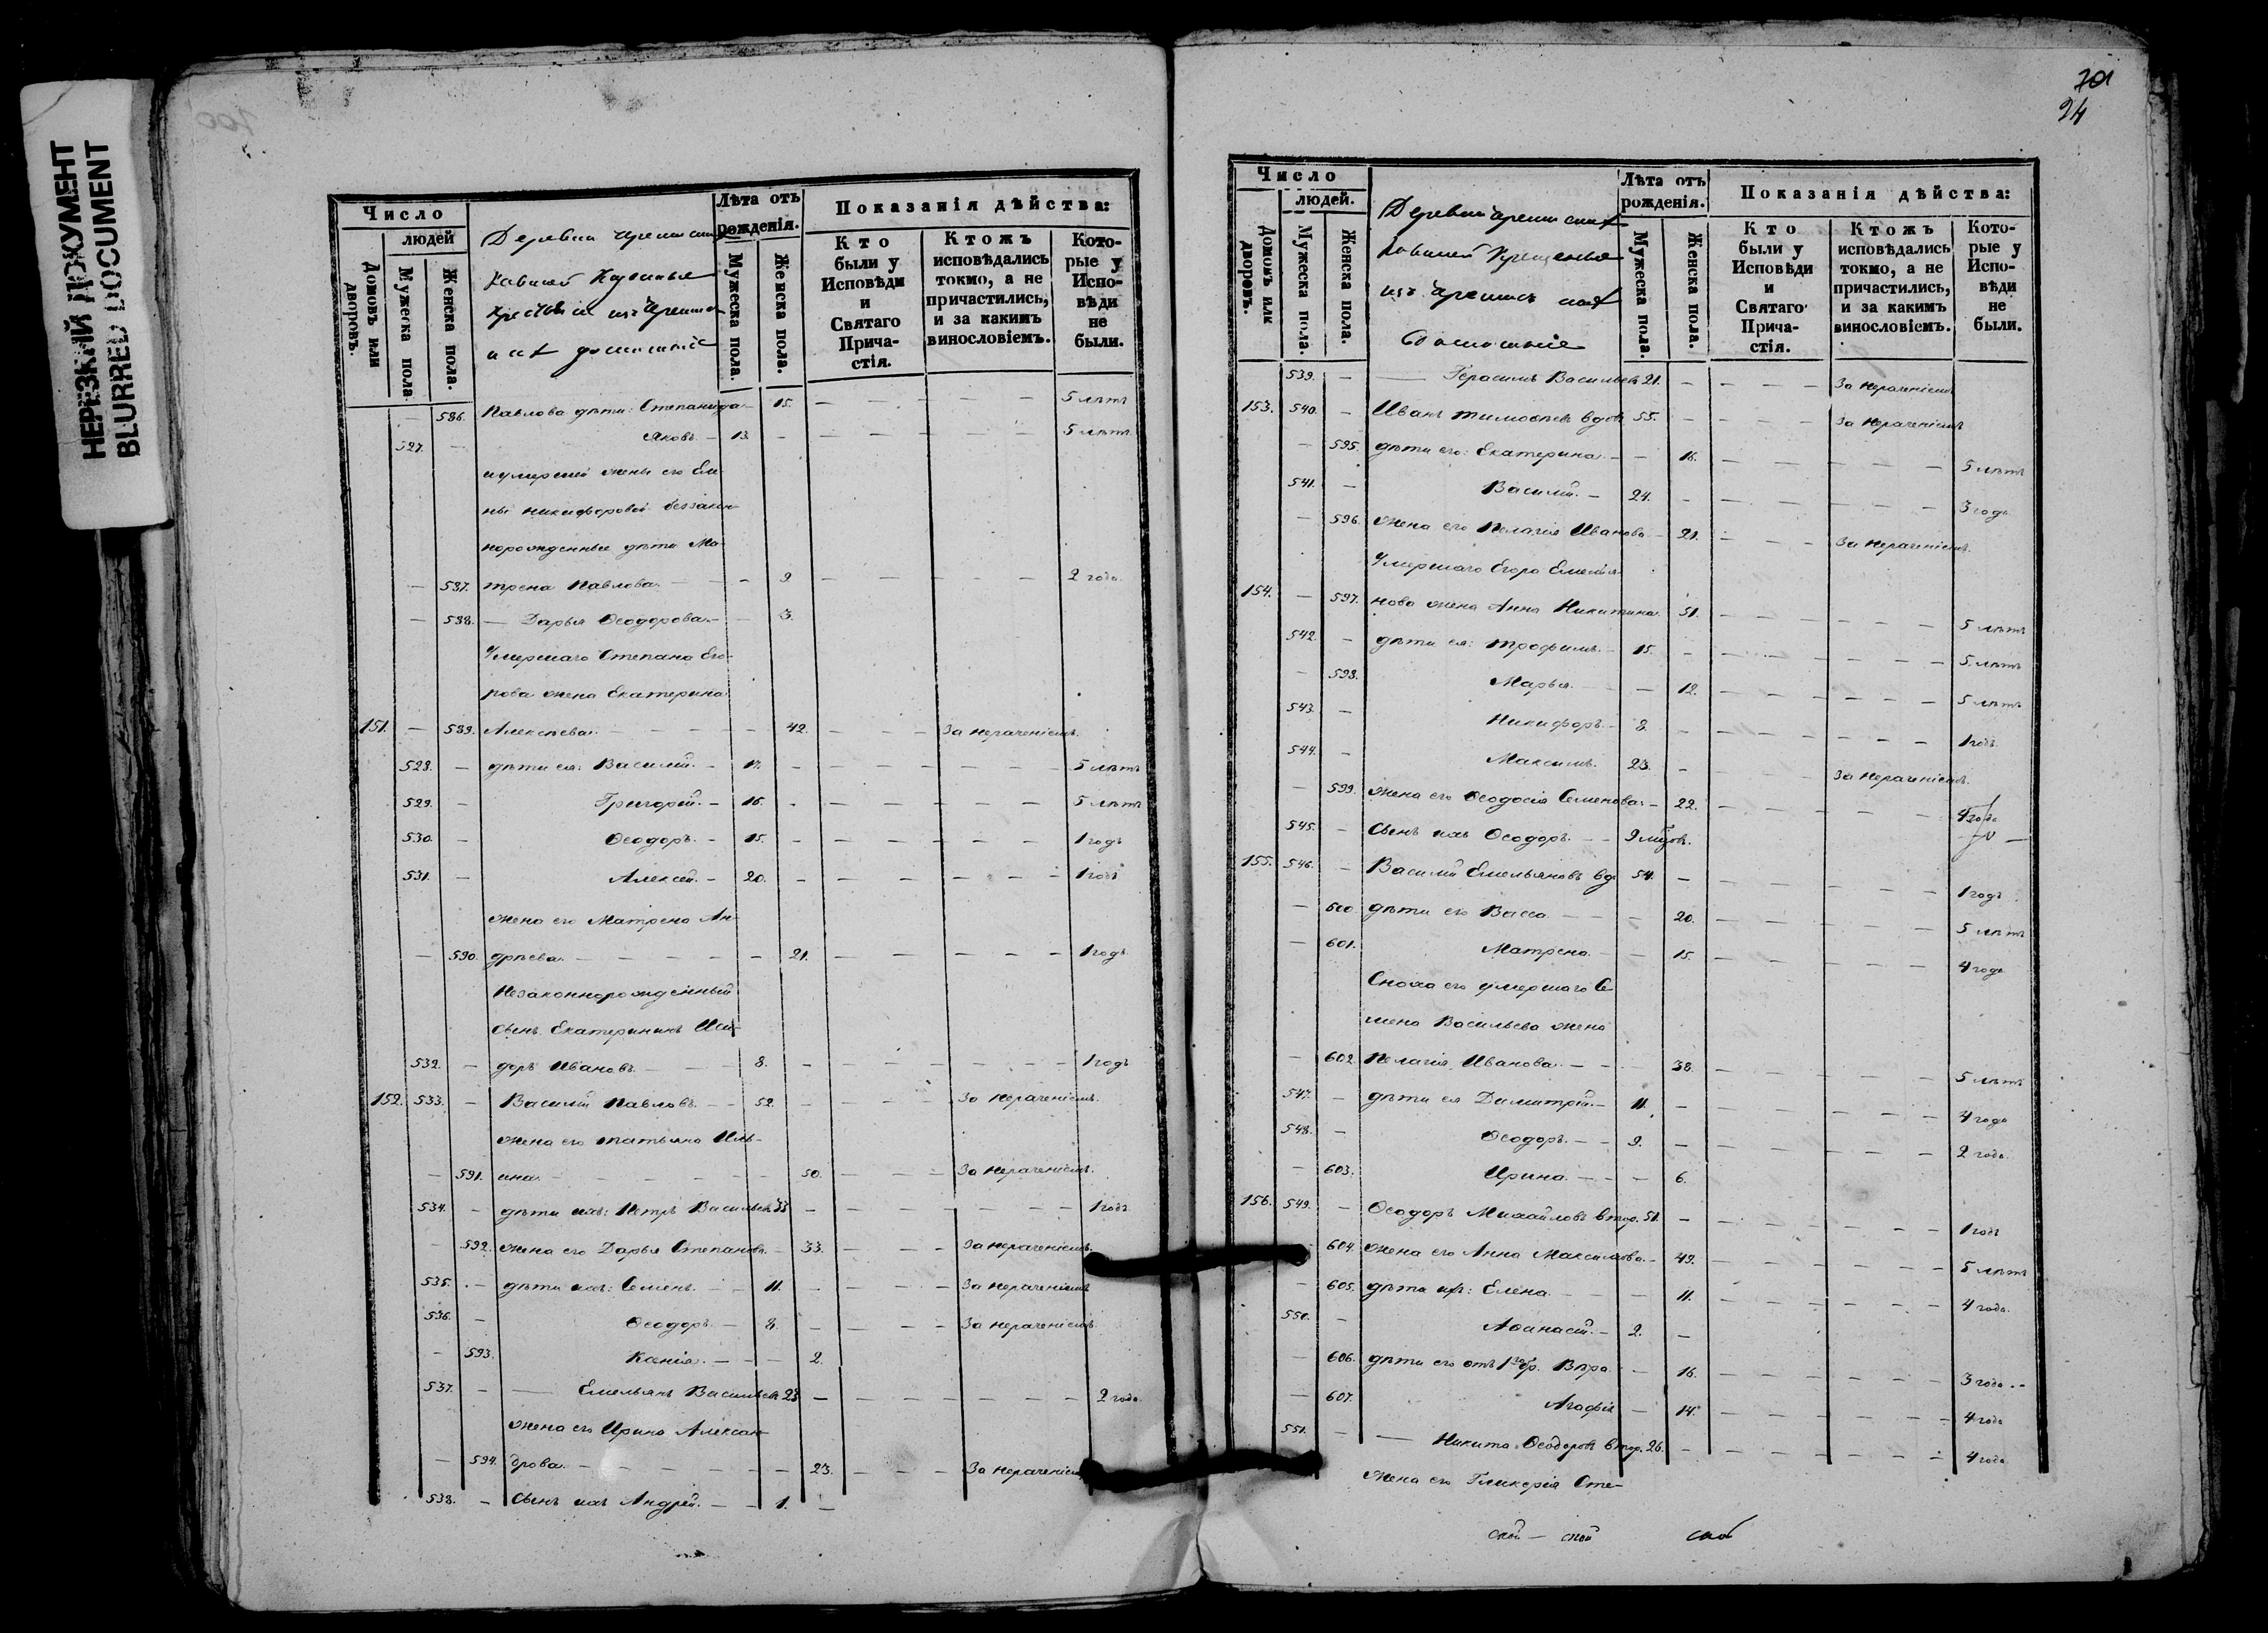 НЕРЕЗКИЙ ДОКУМЕНТ
BLURRED DOCUMENT
Число
людей
Домовъ или дворовъ.
Мужеска пола.
Женска пола.
Деревни
Лѣта отъ рожденія.
Мужеска пола.
Женска пола.
Показанія дѣйства:
Кто были у Исповѣди и Святаго Прича-стія.
Ктожъ исповѣдались токмо, а не причастились, и за какимъ винословіемъ.
Кото-рые у Испо-вѣди не были.
— 586. Павлова дѣти: Степанида — 15. — — — — — 5 лѣтъ
527. — Яковъ. — 13. — — — — — 5 лѣтъ
умершей жены его Еле-
ны Никифоровой беззакон-
норожденные дѣти Ма-
— 587. трена Павлова. — — 9 — — — — — 2 года.
— 588. — Дарья Ѳеодорова. — — 3.
Умершаго Степана Его-
рова жена Екатерина
151. — 589. Алексѣева. — — — — 42. — — — За нераченіемъ.
528. — дѣти ея: Василій. — 17. — — — — — 5 лѣтъ
529. — Григорій. — 16. — — — — — 5 лѣтъ
530. — Ѳеодоръ. — 15. — — — — — 1 годъ
531. — Алексѣй. — 20. — — — — — 1 годъ
жена его Матрена Ан-
— 590. дрѣева. — — — — 21. — — — — — 1 годъ
Незаконнорожденный
сынъ Екатерининъ Иси-
532. — доръ Ивановъ. — — 8. — — — — — 1 годъ
152. 533. — Василій Павловъ. — — 52. — — — — За нераченіемъ.
жена его Татьяна Иль-
— 591. ина. — — — — — 50. — — — За нераченіемъ.
534. — дѣти ихъ: Петръ Васильевъ 33 — — — — — 1 годъ
— 592. жена его Дарья Степанова. — 33. — — — За нераченіемъ.
535. — дѣти ихъ: Семенъ. — — 11. — — — — За нераченіемъ
536. — Ѳеодоръ. — 8. — — — — За нераченіемъ
— 593. Ксенія. — — — 2.
537. — — Емельянъ Васильевъ 23 — — — — — 2 года.
жена его Ирина Алексан-
— 594. дрова. — — — — — 23. — — — За нераченіемъ
538. — сынъ ихъ Андрей. — — 1. —
701
24
Число
людей.
Домовъ или дворовъ.
Мужеска пола.
Женска пола.
Деревни
Лѣта отъ рожденія.
Мужеска пола.
Женска пола.
Показанія дѣйства:
Кто были у Исповѣди и Святаго Прича-стія.
Ктожъ исповѣдались токмо, а не причастились, и за какимъ винословіемъ.
Кото-рые у Испо-вѣди не были.
539. — — Герасимъ Васильевъ 21. — — — — За нераченіемъ
153. 540. — Иванъ Тимоѳеевъ вдов. 55. — — — — За нераченіемъ
— 595. дѣти его: Екатерина. — — 16. — — — — — 5 лѣтъ
541. — Василій. — 24. — — — — — 3 года
— 596. жена его Пелагія Иванова — 21. — — — За нераченіемъ.
Умершаго Егора Емелья-
154. — 597. нова жена Анна Никитина. 51. — — — — — 5 лѣтъ
542. — дѣти ея: Трофимъ. — 15. — — — — — 5 лѣтъ
— 598. Марья. — — 12. — — — — — 5 лѣтъ
543. — Никифоръ. — 8. — — — — — 1 годъ.
544. — Максимъ. 23. — — — — За нераченіемъ.
— 599. жена его Ѳеодосія Семенова. — 22. — — — — — 4 года
545. — сынъ ихъ Ѳеодоръ. — — 9 мцовъ.
155. 546. — Василій Емельяновъ вд. 54. — — — — — 1 годъ
— 600. дѣти его Васса. — — 20. — — — — — 5 лѣтъ
— 601. Матрена. — — 15. — — — — — 4 года
Сноха его умершаго Се-
мена Васильева жена
— 602. Пелагія Иванова. — — 38. — — — — — 5 лѣтъ
547. — дѣти ея Димитрій. — 11. — — — — — 4 года
548. — Ѳеодоръ. — — 9. — — — — — 2 года.
— 603. Ирина. — — — 6.
156. 549. — Ѳеодоръ Михайловъ втор. 51. — — — — — 1 годъ
604. жена его Анна Максимова. — 49. — — — — — 5 лѣтъ
— 605. дѣти ихъ: Елена. — — 11. — — — — — 4 года.
550. — Аѳанасій. — 2. —
— 606. дѣти его отъ 1го бр. Вѣра — 16. — — — — — 3 года. —
— 607. Агафія — 14. — — — — — 4 года
551. — — Никита Ѳеодоровъ втор. 26. — — — — — 4 года
жена его Гликерія Сте-